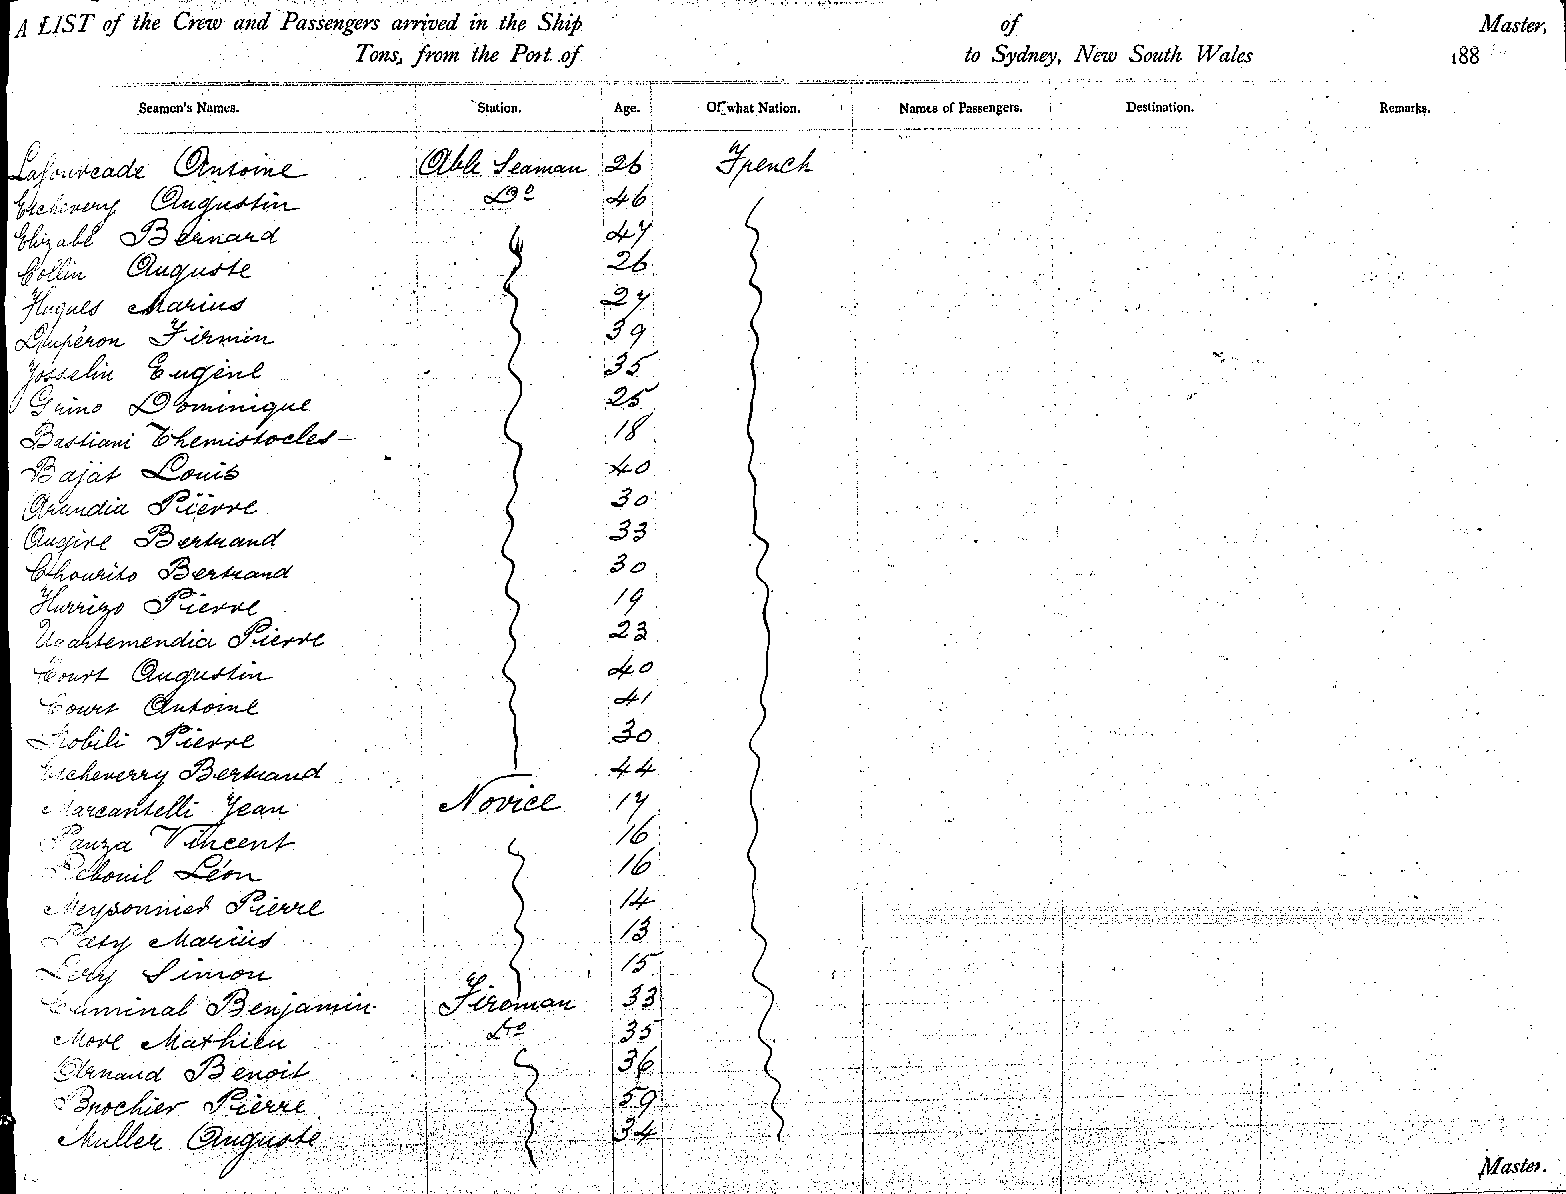 A LIST of the Crew and Passengers arrived in the Ship of Master,
Tons, from the Port of to Sydney, New South Wales 188
Seamen's Names. Station. Age. Of what Nation. Names of Passengers. Destination. Remarks.
Lafourcade Antoine Able Seaman 26 French
Etchevery Augustin Do 46
Elizabl Bernard 47
Collin Auguste 26
Hugues Marius 27
Dupéron Firmin 39
Josselin Eugène 35
Grino Dominique 25
Bastiani Themistocles 18
Bajat Louis 40
Arandia Pierre 30
Augire Bertrand 33
Bertrand 30
Pierre 19
Ugartemendia Pierre 23
Court Augustin 40
Court Antoine 41
Nobili Pierre 30
Etcheverry Bertrand 44
Marcantelli Jean Novice 17
Panza Vincent 16
Rebouil Léon 16
Meysonnier Pierre 14
Paty Marius 13
Simon 15
Caminal Benjamin Fireman 33
More Mathieu Do 35
Arnaud Benoit 36
Brochier Pierre 59
Muller Auguste 34
Master.